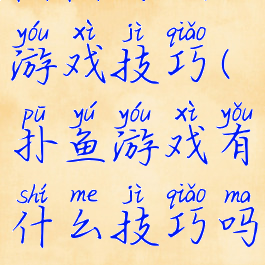 yóu xì jì qiǎo
游戏技巧(
pū yú yóu xì yǒu
扑鱼游戏有
shí me jì qiǎo ma
什么技巧吗